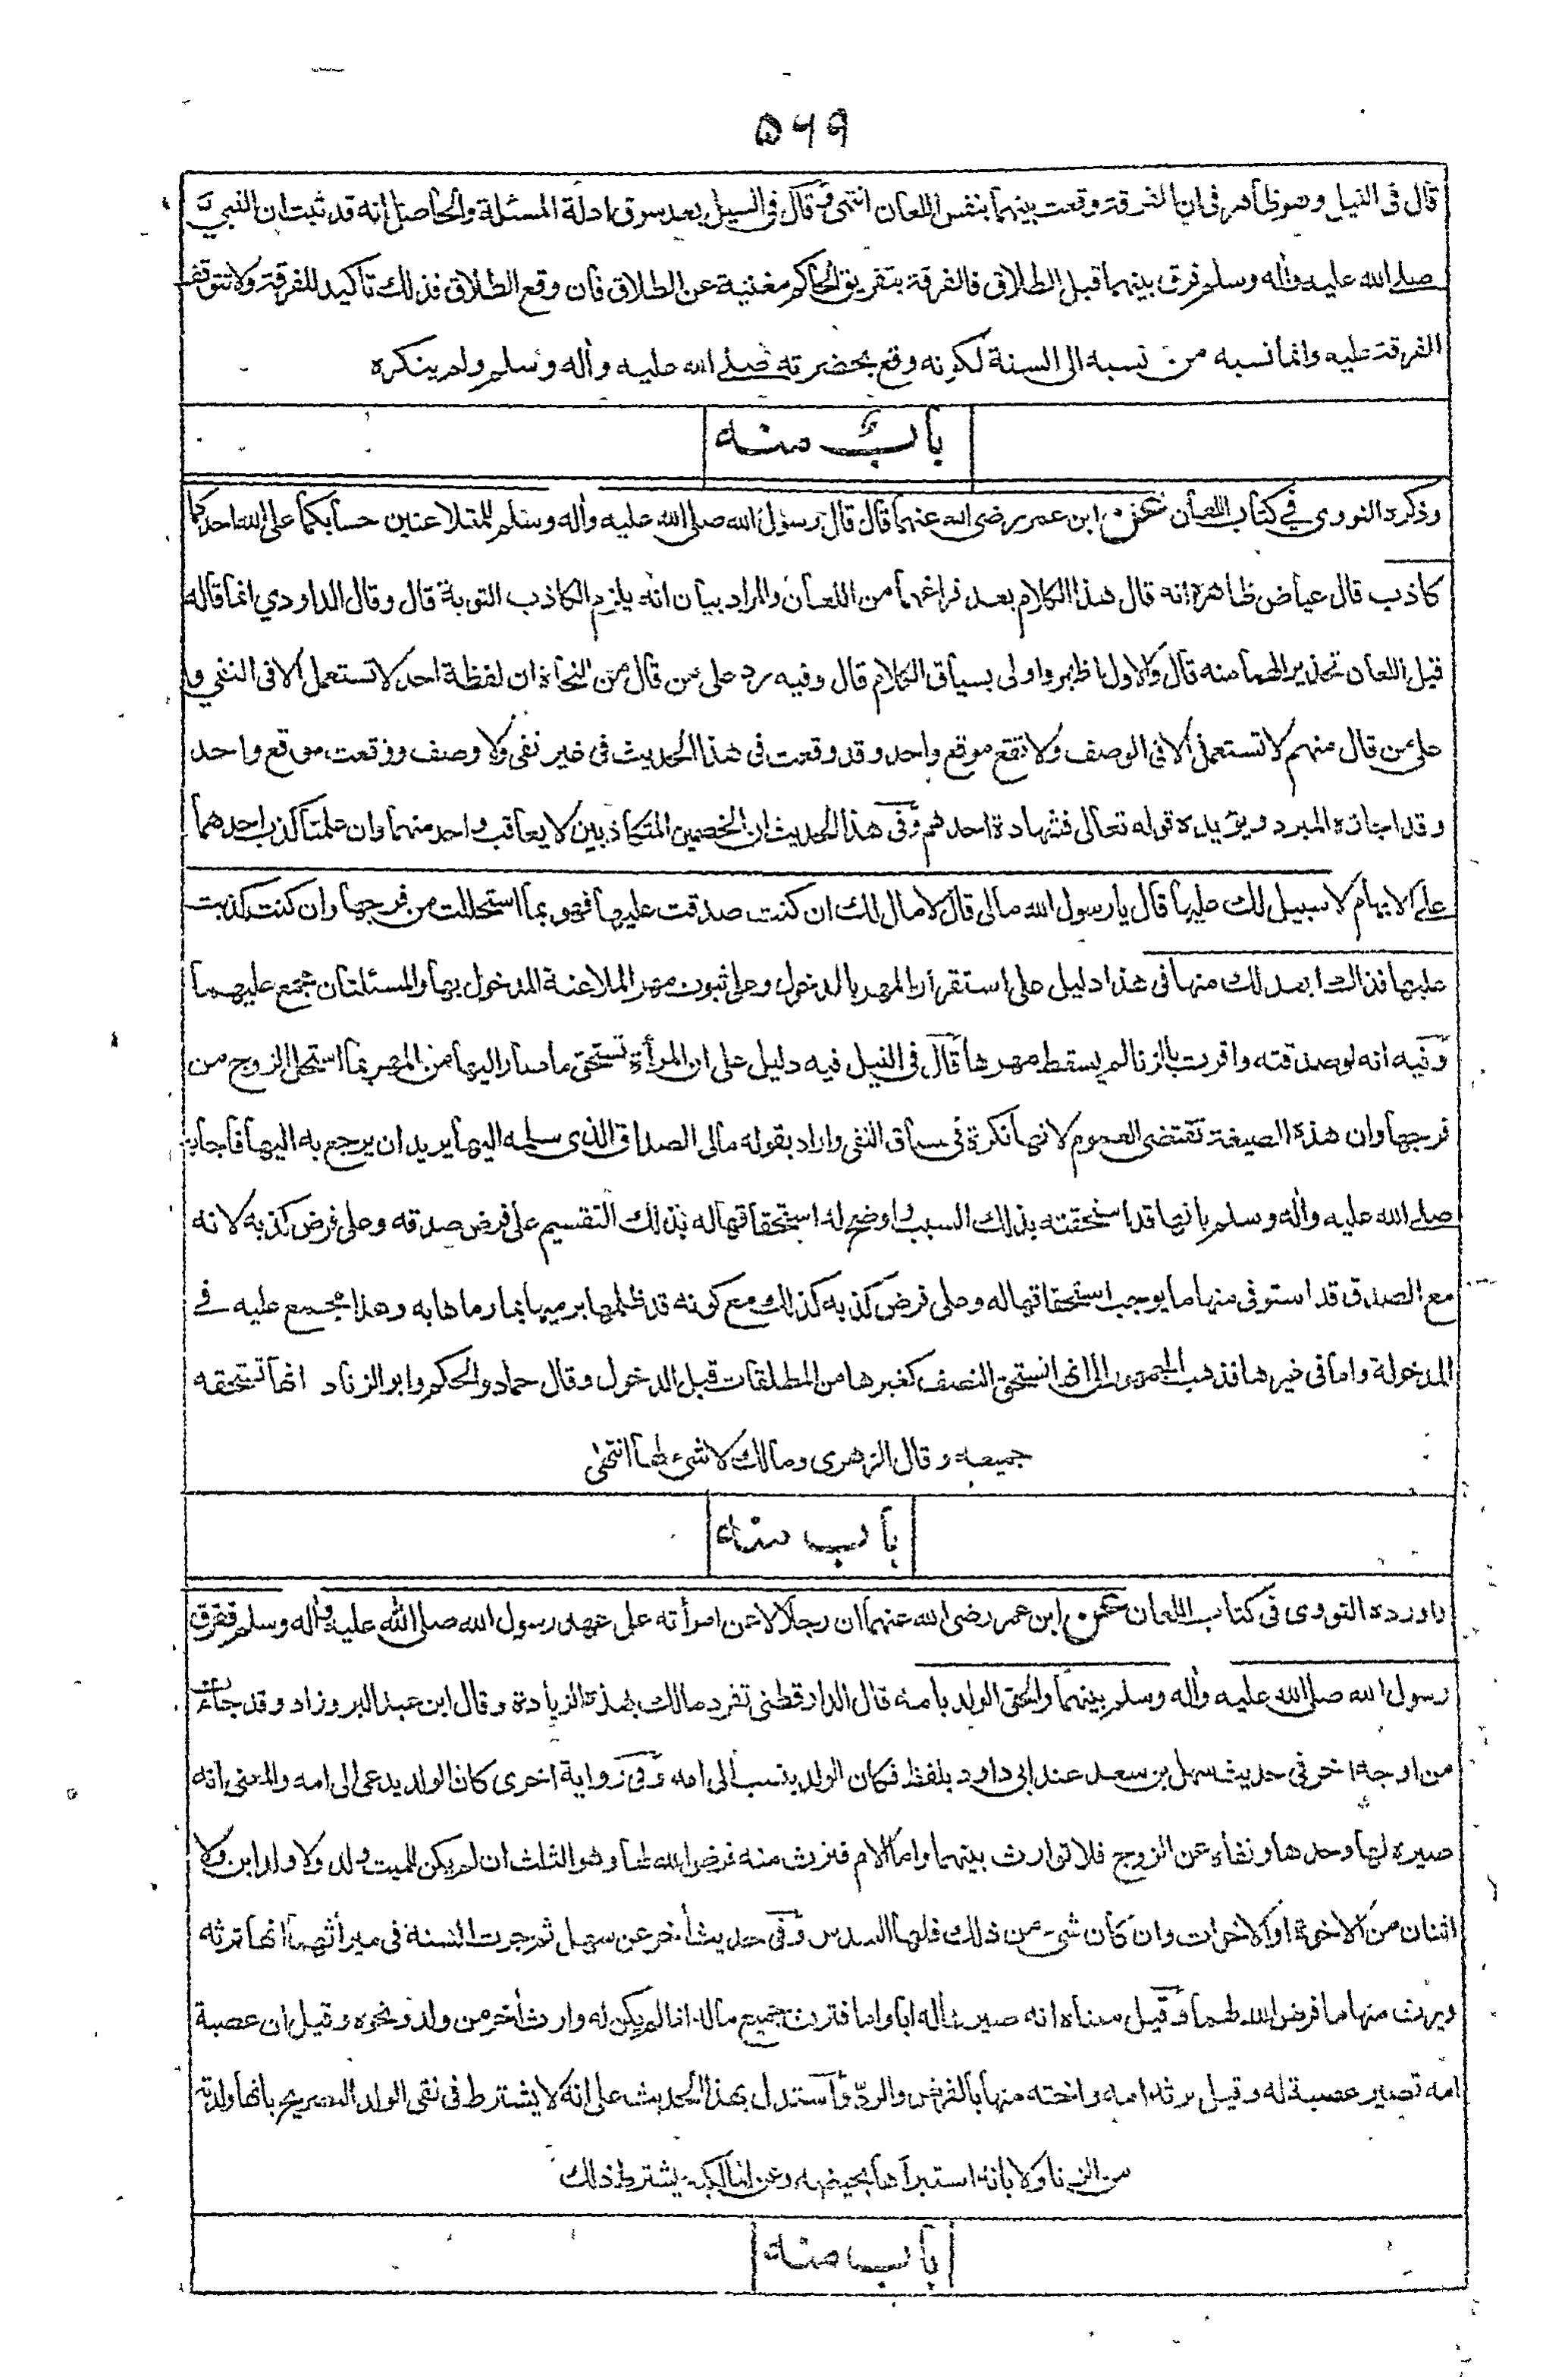 ۵۶۹
قال في النيل وهو ظاهر في ان الفرقة وقعت بينهما بنفس اللعان انتهى وقال في السيل بعد سوق ادلة المسئلة والحاصل انه قد ثبت ان النبي
صلى الله عليه واله وسلم فرق بينهما قبل الطلاق فالفرقة بتفريق الحاكم مغنية عن الطلاق فان وقع الطلاق فذلك تاكيد للفرقة ولا تتوقف
الفرقة عليه وانما نسبه من نسبه الى السنة لكونه وقع بحضرته صلى الله عليه واله وسلم ولم ينكره
باب منه
وذكره النووي في كتاب اللعان عن ابن عمر رضي الله عنهما قال قال رسول الله صلى الله عليه واله وسلم للمتلاعنين حسابكما على الله احدكما
كاذب قال عياض ظاهره انه قال هذا الكلام بعد فراغهما من اللعان والمراد بيان انه يلزم الكاذب التوبة قال وقال الداودي انما قاله
قبل اللعان تحذيرا لهما منه قال والاول اظهر واولى بسياق الكلام قال وفيه رد على من قال من النحاة ان لفظة احد لا تستعمل الا في النفي و
على من قال منهم لا تستعمل الا في الوصف ولا تقع موقع واحد وقد وقعت في هذا الحديث في غير نفي ولا وصف ووقعت موقع واحد
وقد اجازه المبرد ويؤيده قوله تعالى فشهادة احدهم وفي هذا الحديث ان الخصمين المتكاذبين لا يعاقب واحد منهما وان علمنا كذب احدهما
على الابهام لا سبيل لك عليها قال يا رسول الله مالي قال لا مال لك ان كنت صدقت عليها فهو بما استحللت من فرجها وان كنت كذبت
عليها فذاك ابعد لك منها في هذا دليل على استقرار المهر بالدخول وعلى ثبوت مهر الملاعنة المدخول بها والمسئلتان مجمع عليهما
وفيه انه لو صدقته واقرت بالزنا لم يسقط مهرها قال في النيل فيه دليل على ان المرأة تستحق ما صار اليها من المهر بما استحل الزوج من
فرجها وان هذه الصيغة تقتضي العموم لانها نكرة في سياق النفي واراد بقوله مالي الصداق الذي سلمه اليها يريد ان يرجع به اليها فاجابه
صلى الله عليه واله وسلم بانها قد استحقته بذلك السبب واوضح له استحقاقها له بذلك التقسيم على فرض صدقه وعلى فرض كذبه لانه
مع الصدق قد استوفى منها ما يوجب استحقاقها له وعلى فرض كذبه كذلك مع كونه قد ظلمها برميها بما رماها به وهذا مجمع عليه في
المدخولة واما في غيرها فذهب الجمهور الى انها تستحق النصف كغيرها من المطلقات قبل الدخول وقال حماد والحكم وابو الزناد انها تستحقه
جميعه وقال الزهري ومالك لا شيء لها انتهى
باب منه
واورده النووي في كتاب اللعان عن ابن عمر رضي الله عنهما ان رجلا لاعن امرأته على عهد رسول الله صلى الله عليه واله وسلم ففرق
رسول الله صلى الله عليه واله وسلم بينهما والحق الولد بامه قال الدارقطني تفرد مالك بهذه الزيادة وقال ابن عبد البر وزاد وقد جاءت
من اوجه اخر في حديث سهل بن سعد عند ابي داود بلفظ فكان الولد ينسب الى امه وفي رواية اخرى كان الولد يدعى الى امه والمعنى انه
صيره لها وحدها ونفاه عن الزوج فلا توارث بينهما واما الام فترث منه فرض الله لها وهو الثلث ان لم يكن للميت ولد ولا ولد ابن ولا
اثنان من الاخوة او الاخوات وان كان شيء من ذلك فلها السدس وفي حديث أخر عن سهل ثم جرت السنة في ميراثهما انها ترثه
ويرث منها ما فرض الله لهما وقيل معناه انه صيرها له ابا واما فترث جميع ماله اذا لم يكن له وارث أخر من ولد ونحوه وقيل ان عصبة
امه تصير عصبة له وقيل ترثه امه واخته منها بالفرض والرد واستدل بهذا الحديث على انه لا يشترط في نفي الولد التصريح بانها ولدته
من الزنا ولا بانه استبرأها بحيضه وعن المالكية يشترط ذلك
باب منه